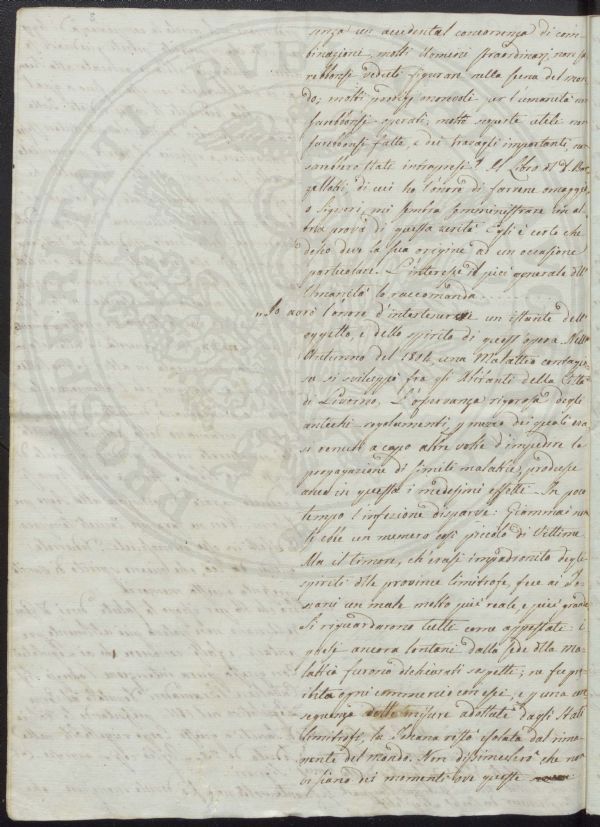 senza un accidental concorrenza di com-
binazione, molti Uomini straordinarj, non sa
rebbonsi veduti figurare nella scena del mon
do; molti prodigj onorevoli per l'umanità non
sarebbonsi operati; molte scoperte utili non
sarebbonsi fatte, e dei travagli importanti, non
sarebbero stati intrapresi? Il Libro del S.
di cui ho l'onore di farvene omaggio
o Signori, mi sembra somministrare un al
tra prova di questa verità. Egli è certo che
desso deve la sua origine ad un occasione
particolare. L'interesse il più generale dell'
Umanità lo raccomanda
„Io avrò l'onore d'intertenervi un istante dell'
oggetto, e dello spirito di quest'opera. Nell'
Autunno del 1804 una Malattia contagio-
sa si sviluppò fra gli Abitanti della Città
di Livorno. L'osservanza rigorosa degli
antichi regolamenti, p mezzo dei quali era
si venuti a capo altre volte d'impedire la
propagazione di simili malattie, produsse
anco in questa i medesimi effetti. In poco
tempo l'infezione disparve: Giammai non
vi ebbe un numero così piccolo di Vittime
Ma il timore, ch'erasi impadronito degli
spiriti delle province limitrofe, fece ai To-
scani un male molto più reale, e più grande
Si riguardarono tutti come appestati: i
paesi ancora lontani dalla sede della ma
lattia furono dichiarati sospetti; fu proi
bita ogni commercio con essi, e p una con
seguenza delle misure adottate dagli Stati
limitrofi, la Toscana restò isolata dal rima
nente del mondo. Non dissimulerò che non
vi siano dei momenti ove queste